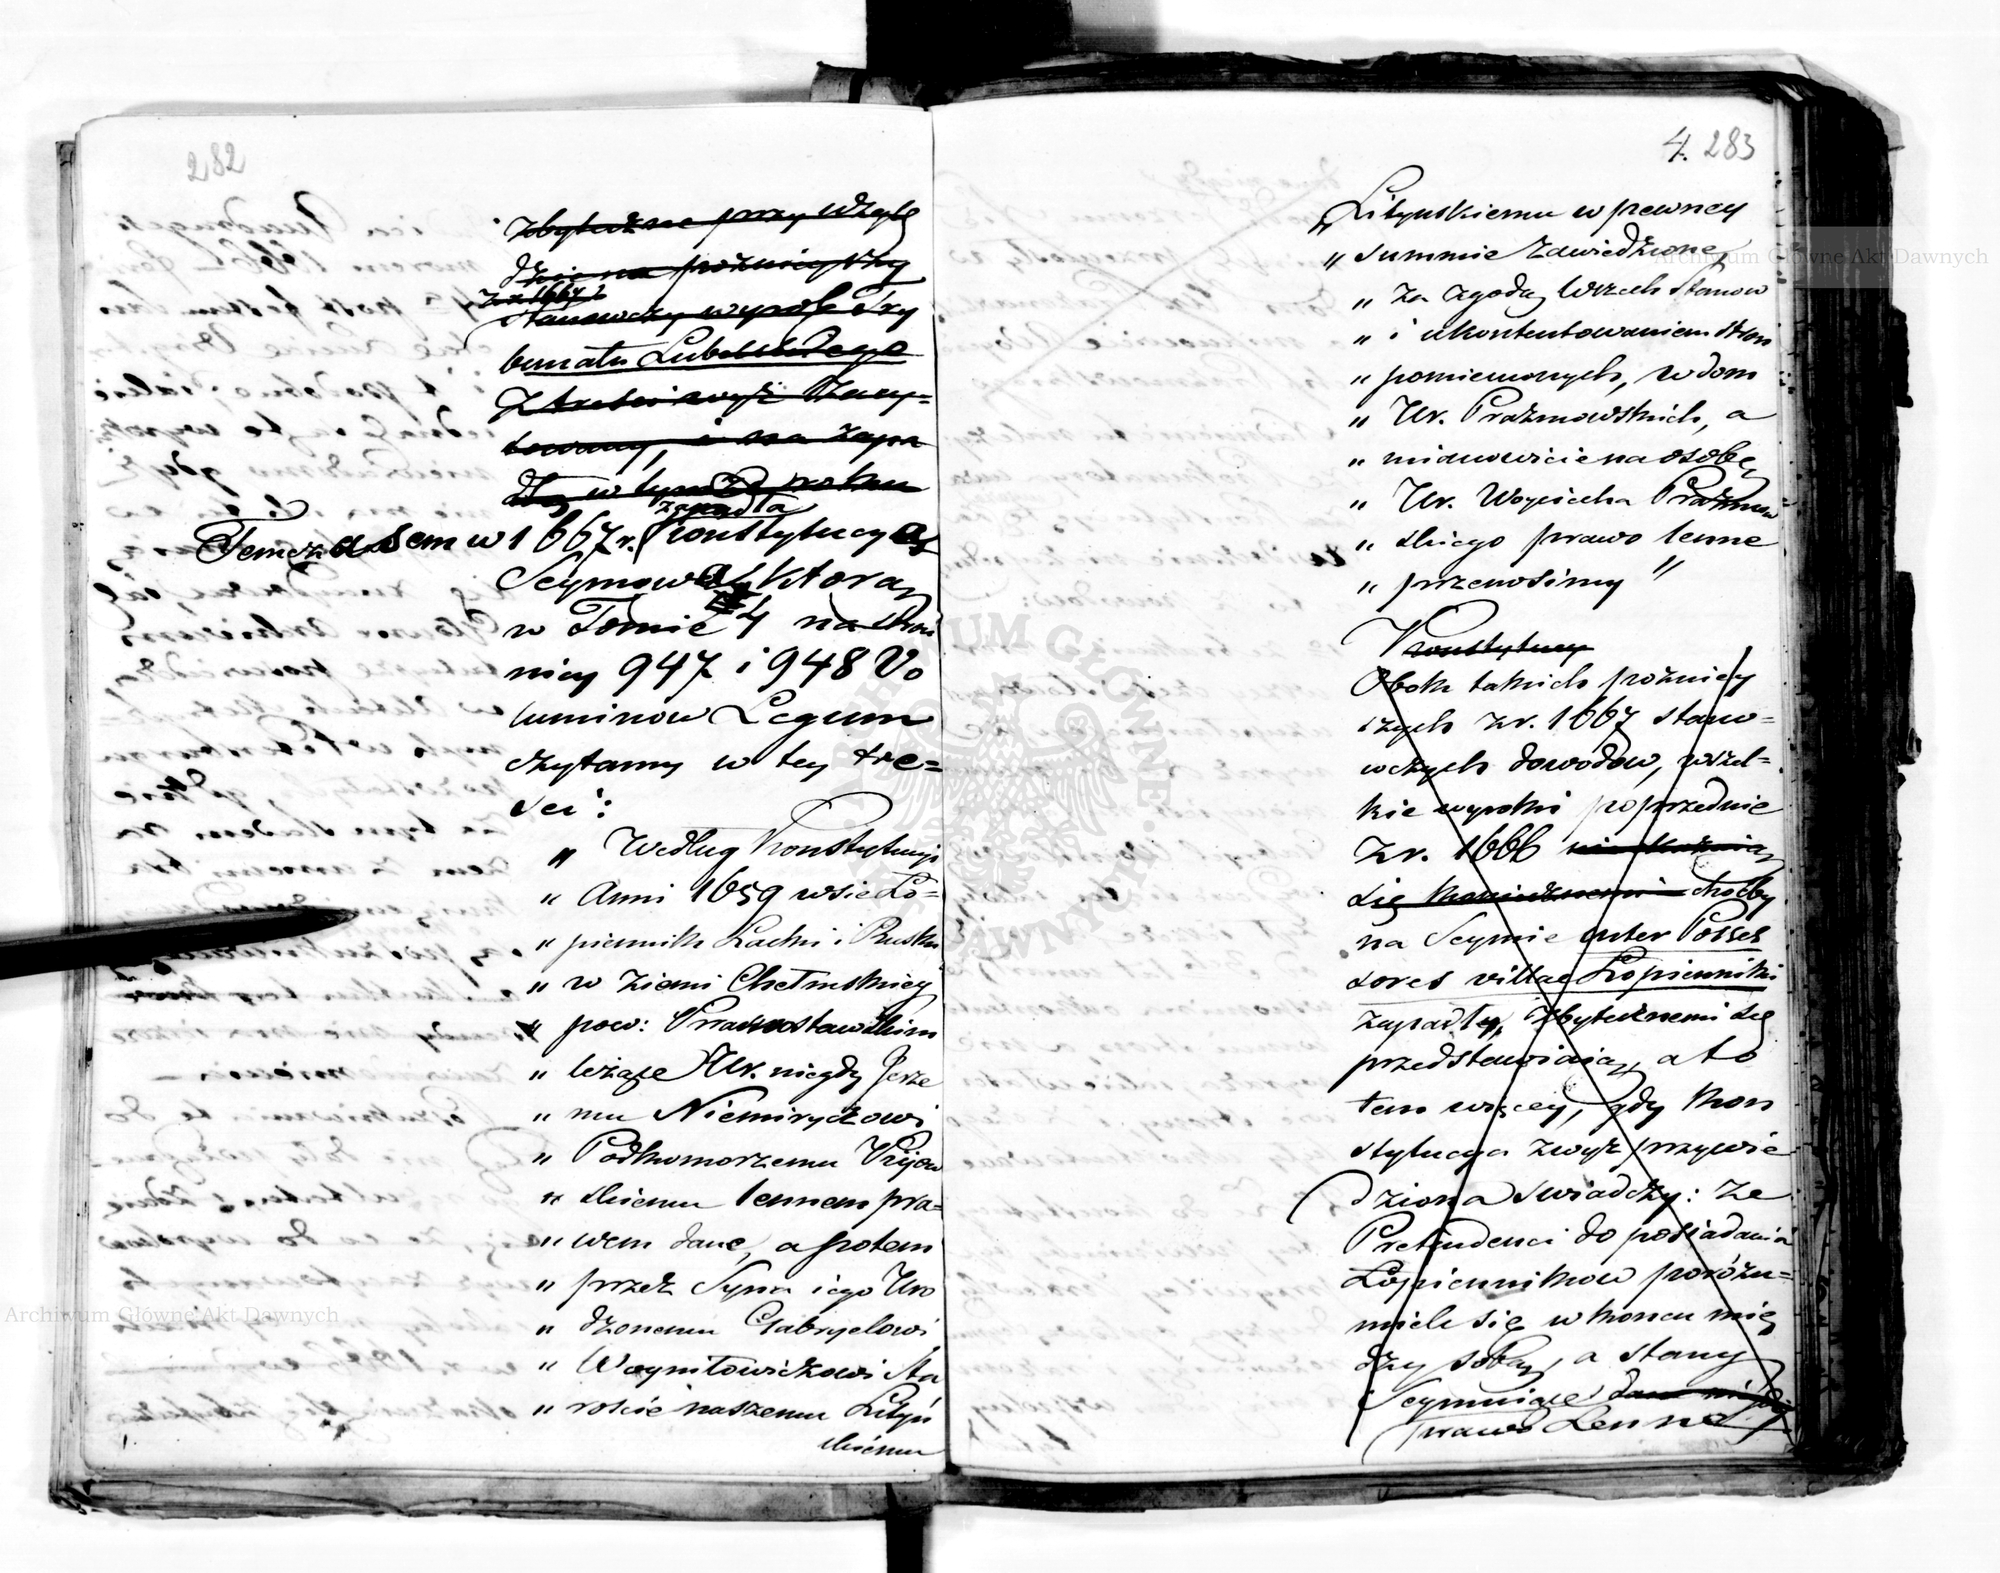 282
zbyteczne przy wzglę
dzie na poźnieyszy
z r. 1667
stanowczy wyrok Try
bunału Lubelskiego
z treści wyż zacy=
towany, i na zapa
dłą w tymże roku
zapadła
Tymczasem w 1667 r. Konstytucyą
Seymową, którą
w Tomie 4 na stro
nicy 947 i 948 Vo
luminow Legum
czytamy w tey tre=
sci:
„ Według Konstytucyi
„ Anni 1659 wsie Ło=
„ piennik Lacki i Ruski
„ w Ziemi Chełmskiey
„ pow: Krasnostawskim
„ leżące Ur. niegdy Jerze
„ mu Niemiryczowi
„ Podkomorzemu Kijow
„ skiemu lennem pra=
„ wem dane, a potem
„ przez Syna iego Uro
„ dzonemu Gabryelowi
„ Woyniłowiczowi Sta
„ roście naszemu Lityń
skiemu
4. 283
„ Lityńskiemu w pewney
„ summie zawiedzione,
„ za zgodą wszech Stanow
„ i ukontentowaniem stron
„ pomienionych, w dom
„ Ur. Prażmowskich, a
„ mianowicie na osobę
„ Ur. Woyciecha Prażmow
„ skiego prawo lenne
„ przenosimy "
Konstytucy
Obok takich poźniey
szych z r. 1667 stano=
wczych dowodow, wszel=
kie wyroki poprzednie
z r. 1666
się choćby
na Seymie inter Posses
sores villae Łopienniki
zapadłe, zbytecznemi się
przedstawiaią, a to
tem więcey, gdy Kon
stytucya zwyż przywie
dziona swiadczy: że
Pretendenci do posiadania
Łopiennikow poróżn=
nieli się w koncu mię
dzy sobą, a stany
Seymuiące
prawo Lenne
Archiwum Główne Akt Dawnych
Archiwum Główne Akt Dawnych
ARCHIWUM GŁÓWNE AKT DAWNYCH